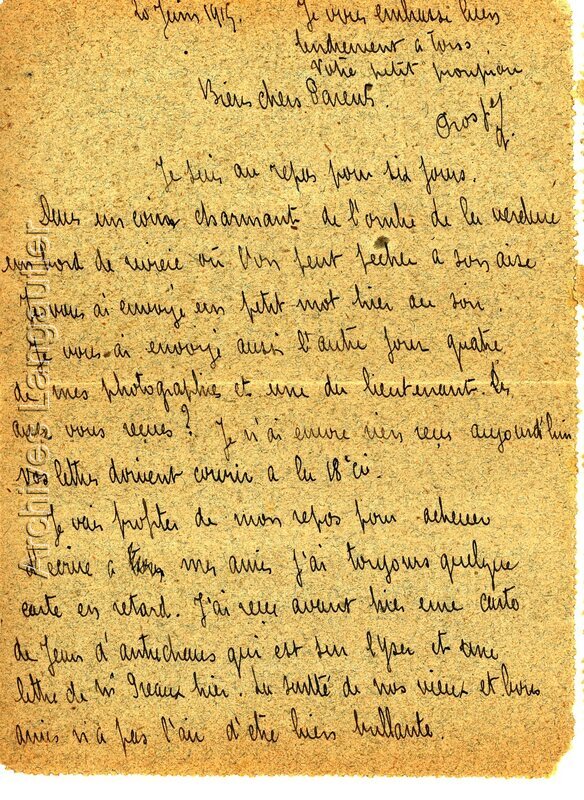 20 Juin 1915.
Je vous embrasse bien
tendrement à tous.
Votre petit pioupiou
Prosper
Biens chers Parents.
Je suis au repos pour six jours.
Dans un coin charmant de l'ombre de la verdure
un bord de riviere où l'on peut pecher à son aise
Je vous ai envoyé un petit mot hier au soir.
Je vous ai envoyé aussi l'autre jour quatre
de mes photographies et une du lieutenant. Les
avez vous reçues? Je n'ai encore rien reçu aujourd'hui
vos lettres doivent courir a la 18e Cie.
Je vais profiter de mon repos pour achever
d'écrire a tous mes amis j'ai toujours quelque
carte en retard. J'ai reçu avant hier une carte
de Jean d'antrechaus qui est sur l'yser et une
lettre de Mr hier. La santé de nos vieux et bons
amis n'a pas l'air d'etre bien brillante.
Archives Langautier